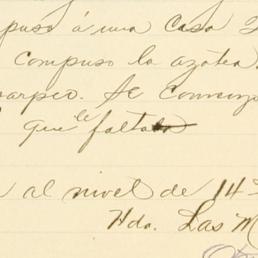 puso á una casa
compuso la azotea.
Se comenz
que le falta
al nivel de 14
Hda. Las M